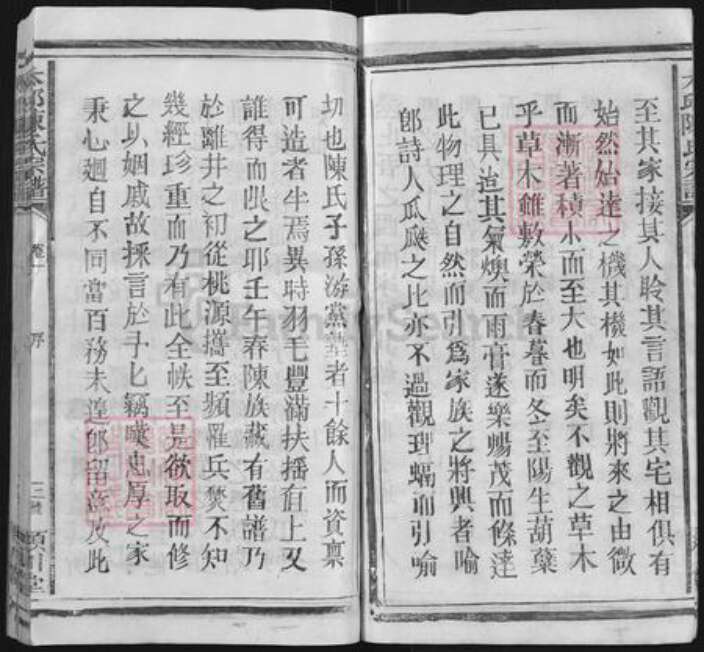 至其家接其人聆其言語觀其宅相俱有
始然始達之機其機如此則將來之由微
而漸著積小而至大也明矣不觀之草木
乎草木雖敷榮於春暮而冬至陽生葫蘖
已具迨其氣燠而雨膏遂樂賜茂而條達
此物理之自然而引為家族之將興者喻
郎詩人瓜瓞之比亦不過觀理蝠而引喻
切也陳氏子孫游黨塾者十餘人而資稟
可造者半焉異時羽毛豐滿扶搖自上又
誰得而限之耶壬午春陳族藏有舊譜乃
於離井之初從桃源攜至頻罹兵燹不知
幾經珍重而乃有此全帙至是欲取而修
之以姻戚故採言於予匕竊嘆忠厚之家
秉心迴自不同當百務未遑郎留意及此
太邱陳氏宗譜
卷一
序
潁川堂
太邱陳氏宗譜